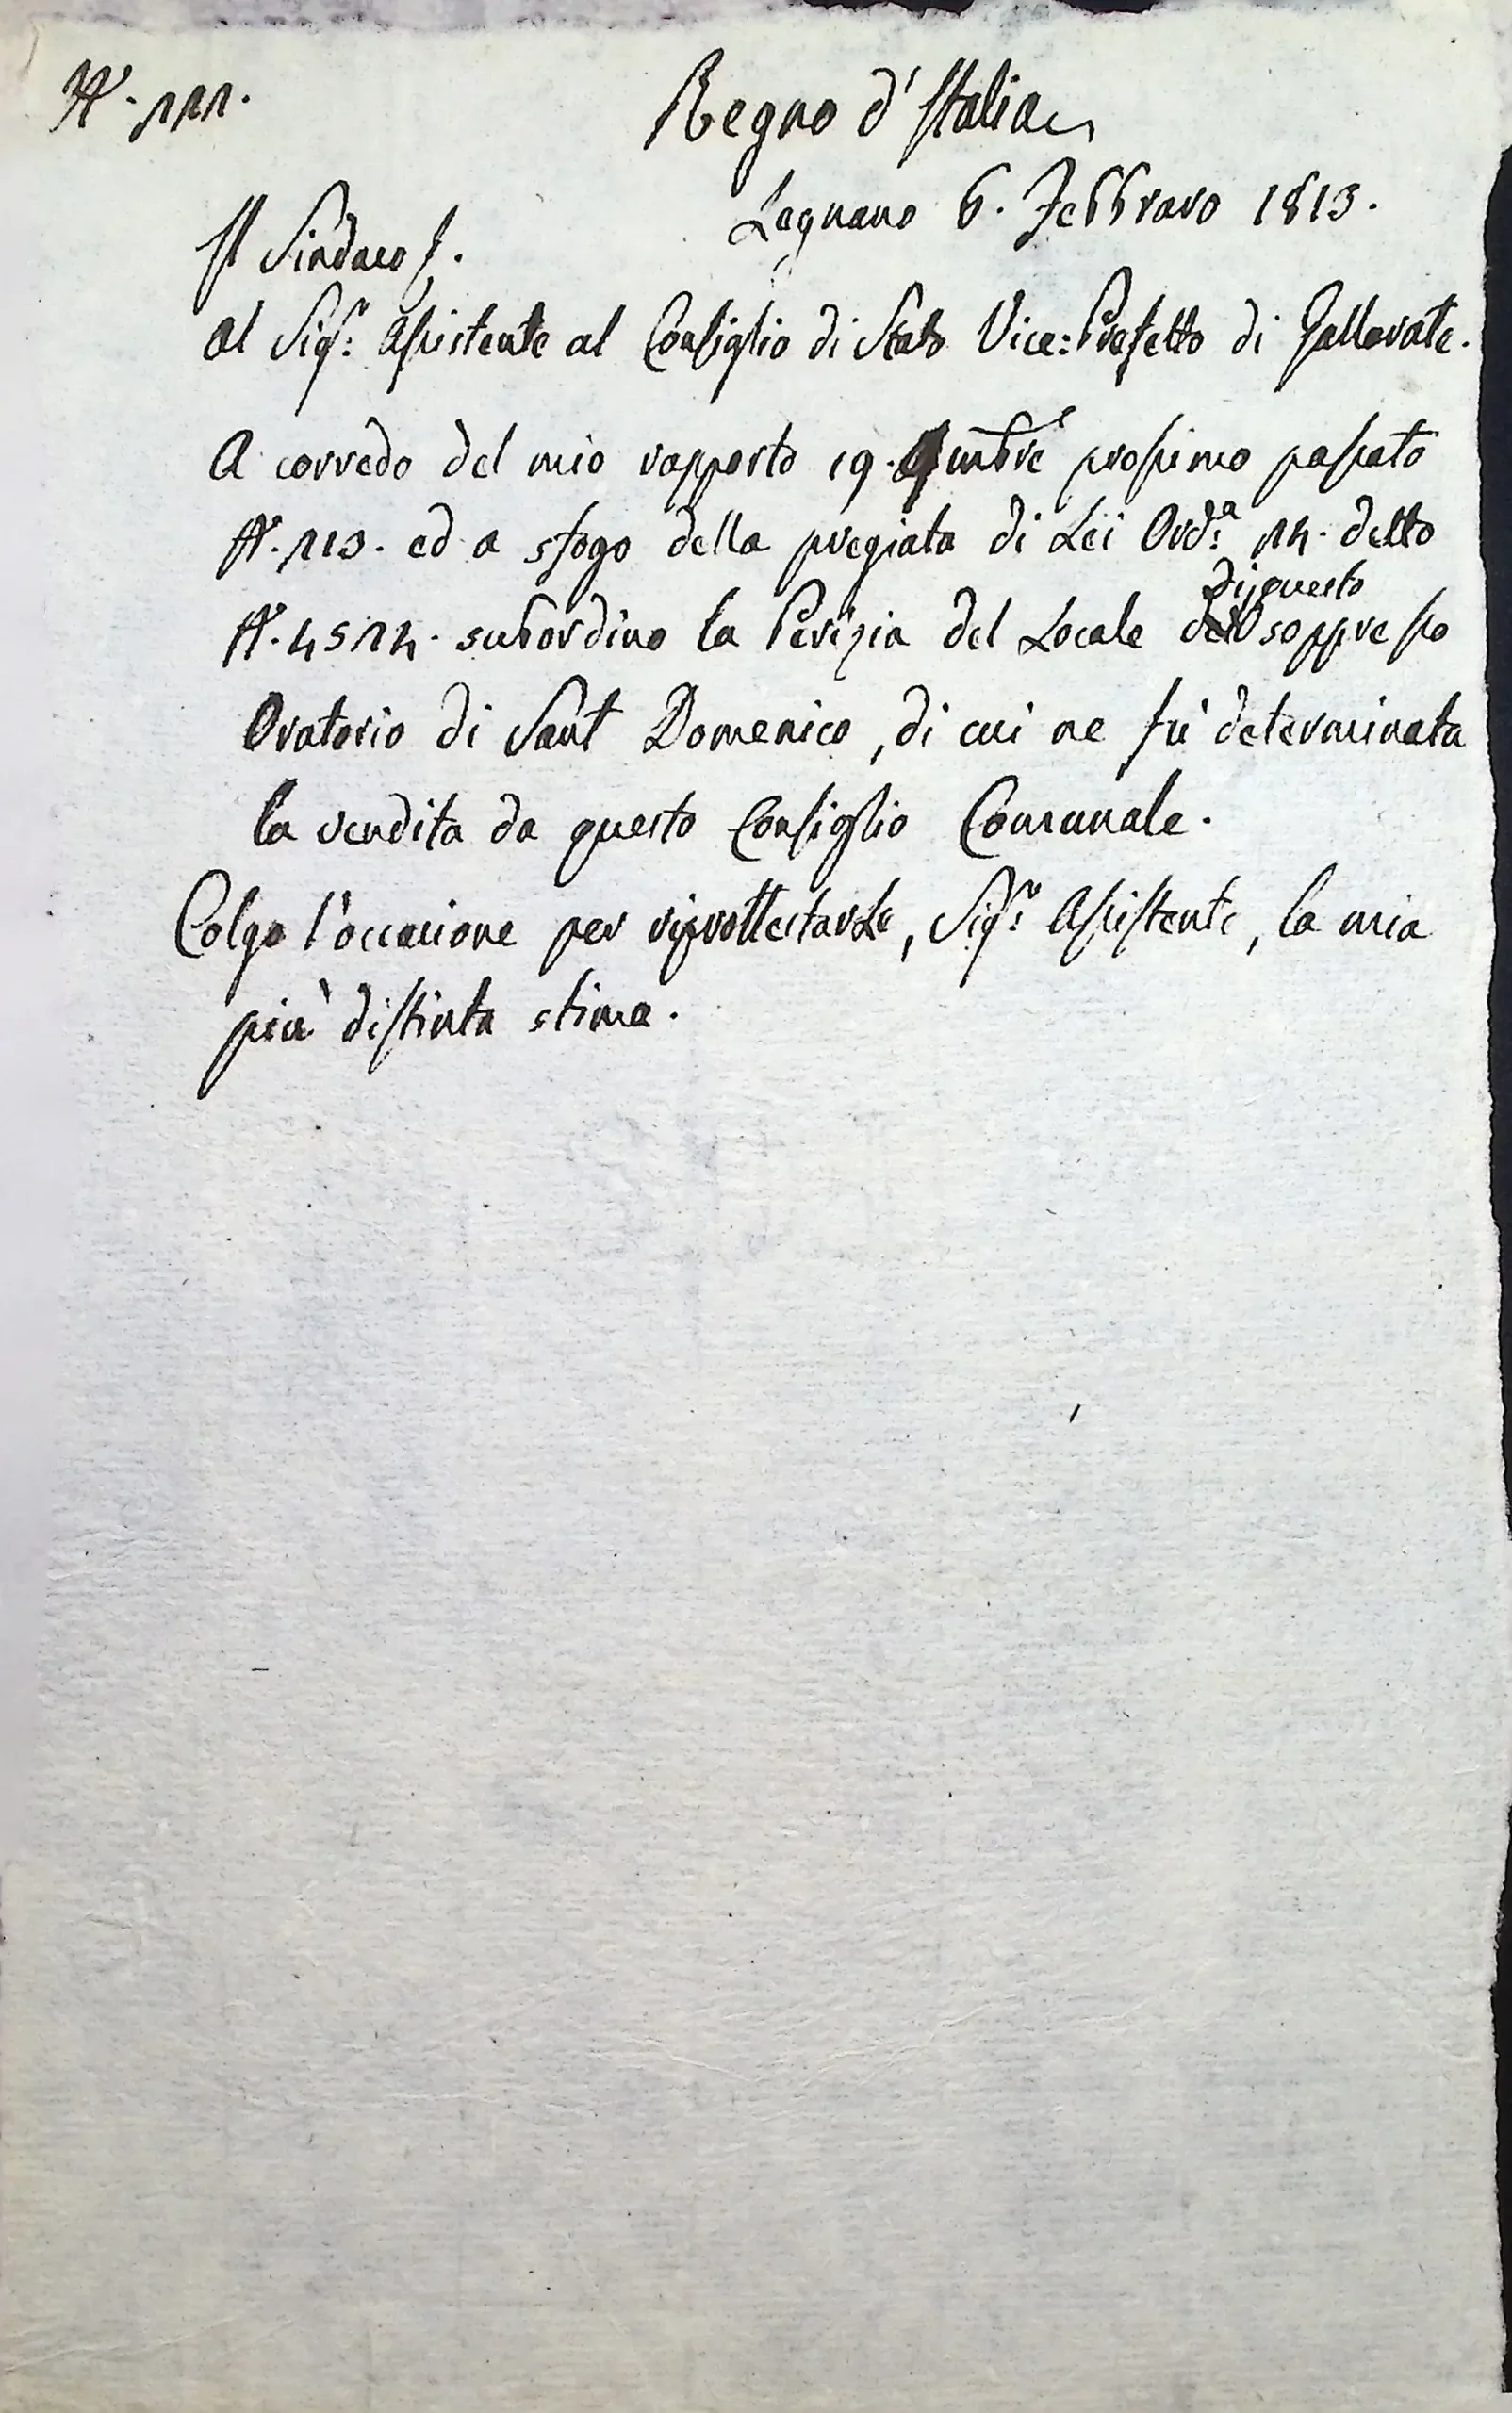 N.° 222.
Regno d'Italia
Legnano 6. Febbraro 1813.
Il Sindaco f.
Al Sig.r Assistente al Consiglio di Stato Vice:Prefetto di Gallarate.
A corredo del mio rapporto 19. 9mbre prossimo passato
N. 213. ed a sfogo della pregiata di Lei Ord.a 24. detto
di questo
N. 4524. subordino la Perizia del Locale del soppresso
Oratorio di Sant Domenico, di cui ne fù determinata
la vendita da questo Consiglio Comunale.
Colgo l'occasione per riprottestarLe, Sig.r Assistente, la mia
più distinta stima.